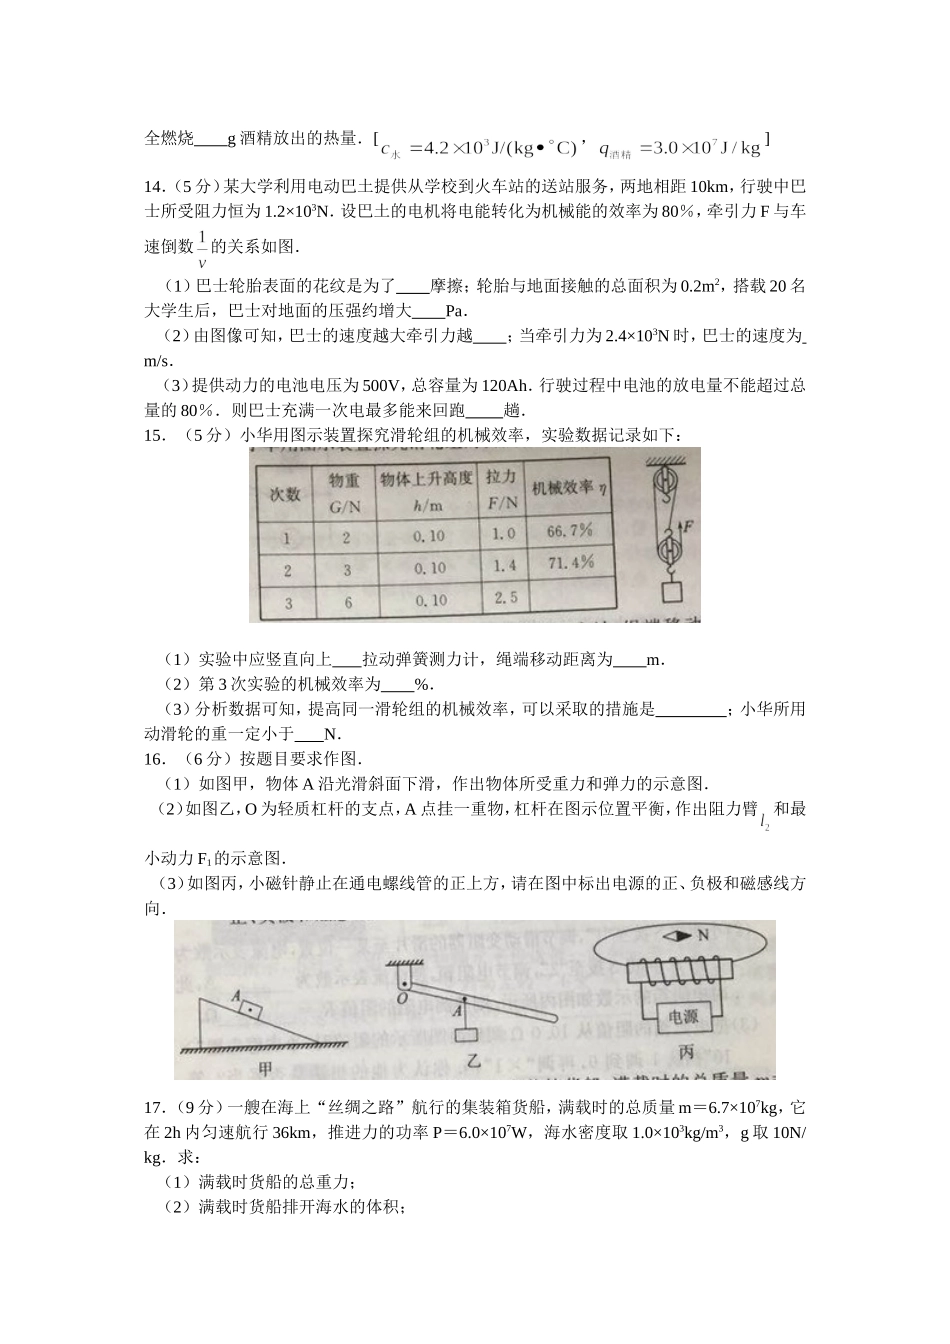 全燃烧____g 酒精放出的热量．[c水=4.2×10³J/(kg•°C)，q酒精=3.0×10⁷J/kg]
14．（5 分）某大学利用电动巴士提供从学校到火车站的送站服务，两地相距 10km，行驶中巴
士所受阻力恒为 1.2×10³N．设巴士的电机将电能转化为机械能的效率为 80％，牵引力 F 与车
速倒数 1/v 的关系如图．
（1）巴士轮胎表面的花纹是为了____摩擦；轮胎与地面接触的总面积为 0.2m²，搭载 20 名
大学生后，巴士对地面的压强约增大____Pa．
（2）由图像可知，巴士的速度越大牵引力越____；当牵引力为 2.4×10³N 时，巴士的速度为_
m/s．
（3）提供动力的电池电压为 500V，总容量为 120Ah．行驶过程中电池的放电量不能超过总
量的 80％．则巴士充满一次电最多能来回跑____ 趟．
15．（5 分）小华用图示装置探究滑轮组的机械效率，实验数据记录如下：
次数 物重 G/N 物体上升高度 h/m 拉力 F/N 机械效率 η
1 2 0.10 1.0 66.7%
2 3 0.10 1.4 71.4%
3 6 0.10 2.5
F
（1）实验中应竖直向上____拉动弹簧测力计，绳端移动距离为____m．
（2）第 3 次实验的机械效率为____%．
（3）分析数据可知，提高同一滑轮组的机械效率，可以采取的措施是_________；小华所用
动滑轮的重一定小于____N．
16．（6 分）按题目要求作图．
（1）如图甲，物体 A 沿光滑斜面下滑，作出物体所受重力和弹力的示意图．
（2）如图乙，O 为轻质杠杆的支点，A 点挂一重物，杠杆在图示位置平衡，作出阻力臂 l₂ 和最
小动力 F₁的示意图．
（3）如图丙，小磁针静止在通电螺线管的正上方，请在图中标出电源的正、负极和磁感线方
向．
A
甲
O
A
乙
N
电源
丙
17．（9 分）一艘在海上“丝绸之路”航行的集装箱货船，满载时的总质量 m＝6.7×10⁷kg，它
在 2h 内匀速航行 36km，推进力的功率 P＝6.0×10⁷W，海水密度取 1.0×10³kg/m³，g 取 10N/
kg．求：
（1）满载时货船的总重力；
（2）满载时货船排开海水的体积；